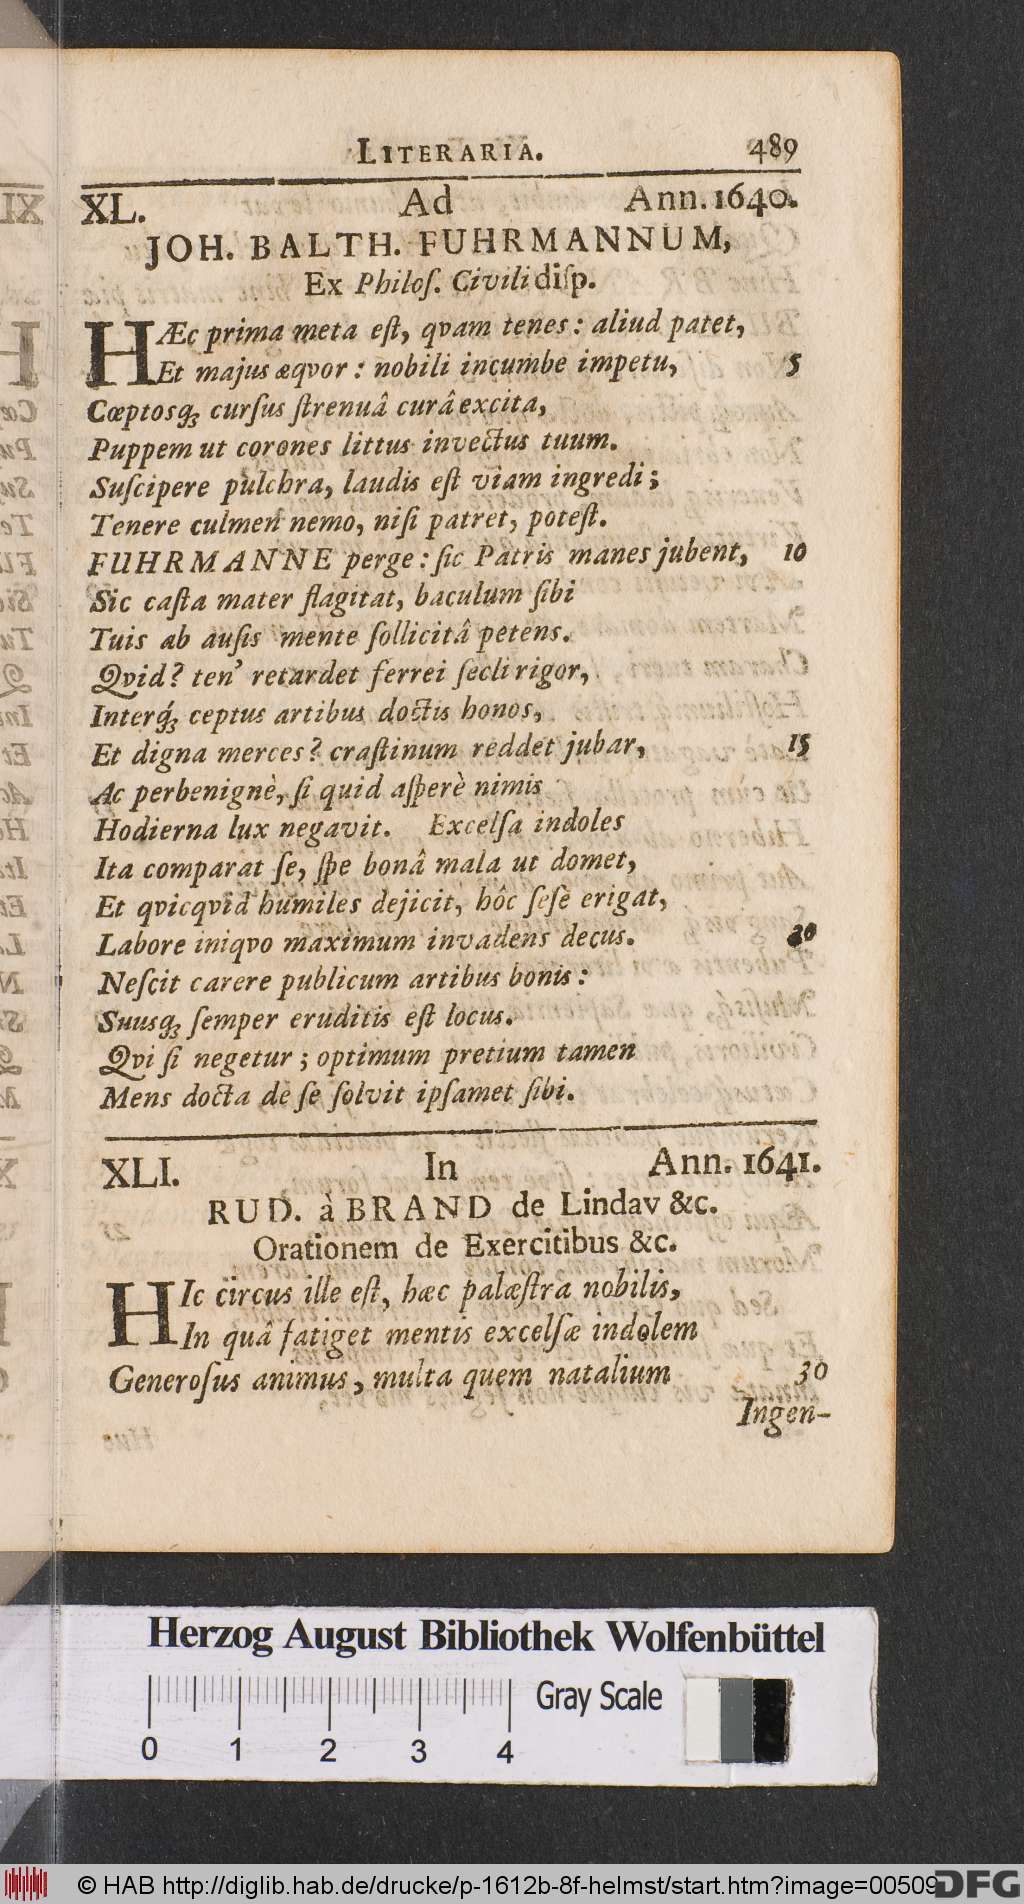 LITERARIA. 489
XL. Ad Ann. 1640.
JOH. BALTH. FUHRMANNUM,
Ex Philoſ. Civili diſp.
HÆc prima meta eſt, qvam tenes: aliud patet,
Et majus æqvor: nobili incumbe impetu, 5
Cœptosq́ꝫ curſus ſtrenuâ curâ excita,
Puppem ut corones littus invectus tuum.
Suſcipere pulchra, laudis eſt viam ingredi;
Tenere culmen nemo, niſi patret, poteſt.
FUHRMANNE perge: ſic Patris manes jubent, 10
Sic caſta mater flagitat, baculum ſibi
Tuis ab auſis mente ſollicitâ petens.
Qvid? ten' retardet ferrei ſecli rigor,
Interq́ꝫ ceptus artibus doctis honos,
Et digna merces? craſtinum reddet jubar, 15
Ac perbenignè, ſi quid aſperè nimis
Hodierna lux negavit. Excelſa indoles
Ita comparat ſe, ſpe bonâ mala ut domet,
Et qvicqvid humiles dejicit, hôc ſeſe erigat,
Labore iniqvo maximum invadens decus. 20
Neſcit carere publicum artibus bonis:
Suusqꝫ ſemper eruditis eſt locus.
Qvi ſi negetur; optimum pretium tamen
Mens docta de ſe ſolvit ipſamet ſibi.
XLI. In Ann. 1641.
RUD. à BRAND de Lindav &c.
Orationem de Exercitibus &c.
HIc circus ille eſt, hæc palæſtra nobilis,
In quâ fatiget mentis excelſæ indolem
Generoſus animus, multa quem natalium 30
Ingen-
Herzog August Bibliothek Wolfenbüttel
Gray Scale
0 1 2 3 4
© HAB http://diglib.hab.de/drucke/p-1612b-8f-helmst/start.htm?image=00509
DFG